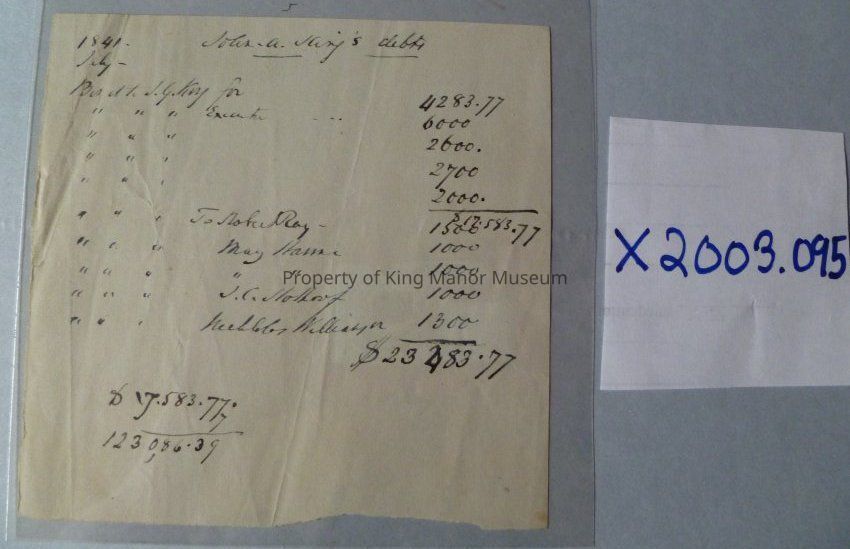 1841. John. A. King's debts
July -
J. G. King for 4283.77
" " " Execute - - - 6000
" " " 2600.
" " " 2700
" " " 2000.
$ 17.583.77
" " " To Robert Ray - 1500
" " " May 1000
" " " " 1000
" " " J. C. 1000
" " " 1300
$ 23 483.77
$ 17.583.77
123,086.39
Property of King Manor Museum
X2003.095